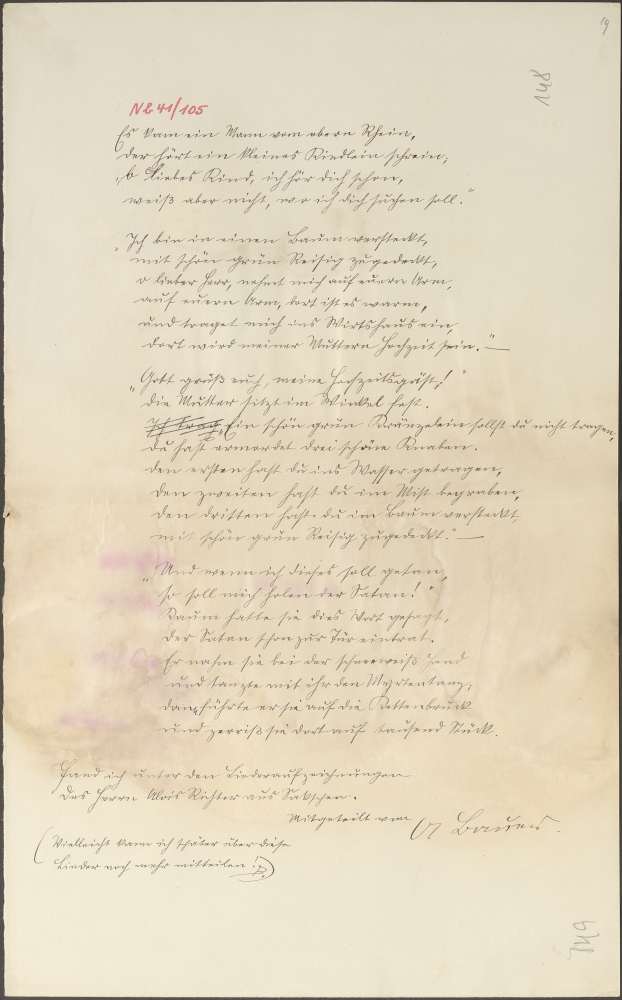 19
148
N b 41/105
Es kam ein Mann vom obern Rhein,
der hört ein kleines Kindlein schrein;
„O liebes Kind, ich hör dich schon,
weiß aber nicht, wo ich dich suchen soll."
„Ich bin in einen Baum versteckt,
mit schön grün Reisig zugedeckt,
o lieber Herr, nehmt mich auf euern Arm,
auf euern Arm, dort ist es warm,
und traget mich ins Wirtshaus ein,
dort wird meiner Muttern Hochzeit sein." —
„Gott grüß euch, meine Hochzeitsgäst!"
Die Mutter sitzt im Winkel fest.
„Ein schön grün Kränzelein sollst du nicht tragen,
du hast ermordet drei schöne Knaben.
Den ersten hast du ins Wasser getragen,
den zweiten hast du im Mist begraben,
den dritten hast du im Baum versteckt,
mit schön grün Reisig zugedeckt." —
„Und wenn ich dieses soll getan,
so soll mich holen der Satan!"
Kaum hatte sie dies Wort gesagt,
der Satan schon zur Tür eintrat.
Er nahm sie bei der schneeweiß Hand
und tanzte mit ihr den Myrtentanz;
dann führte er sie auf die Kettenbrück
und zerriß sie dort auf tausend Stück.
Fand ich unter den Liederaufzeichnungen
des Herrn Alois Richter aus Sakschen.
Mitgeteilt von Bauer.
(Vielleicht kann ich später über diese
Lieder noch mehr mitteilen!)
149